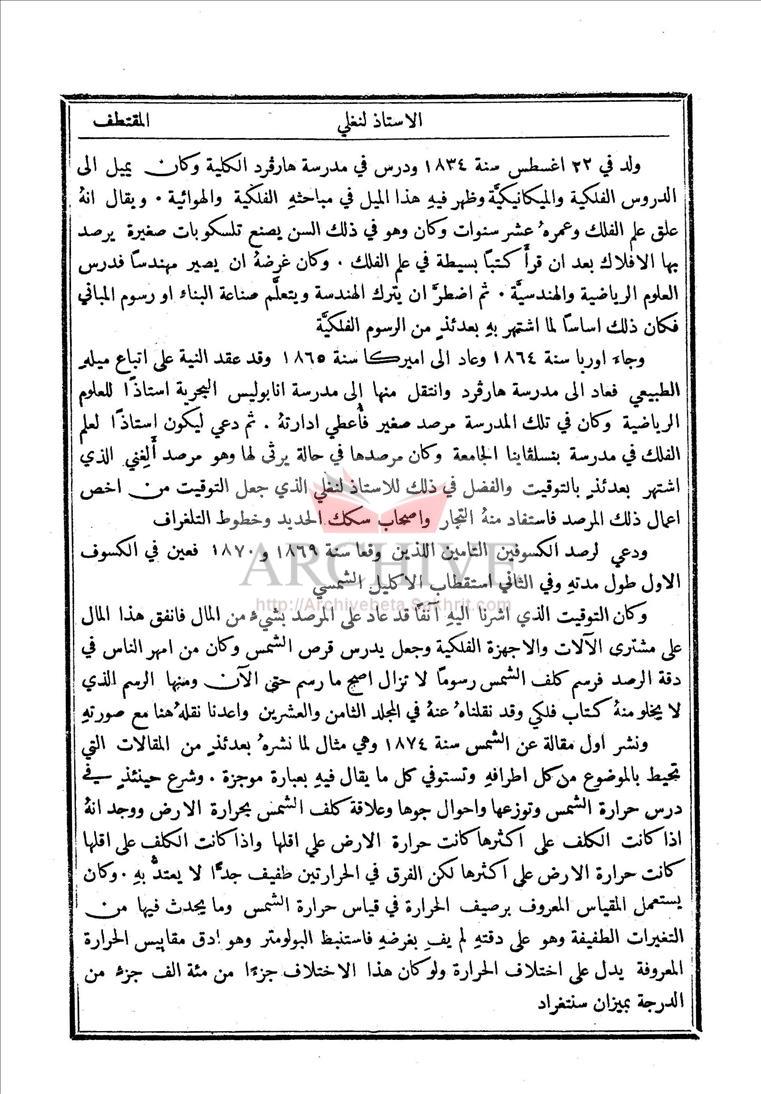 المقتطف الاستاذ لنغلي
ولد في ٢٢ اغسطس سنة ١٨٣٤ ودرس في مدرسة هارڤرد الكلية وكان يميل الى
الدروس الفلكية والميكانيكيَّة وظهر فيهِ هذا الميل في مباحثهِ الفلكية والهوائية . ويقال انهُ
علق علم الفلك وعمرهُ عشر سنوات وكان وهو في ذلك السن يصنع تلسكوبات صغيرة يرصد
بها الافلاك بعد ان قرأ كتبًا بسيطة في علم الفلك . وكان غرضهُ ان يصير مهندسًا فدرس
العلوم الرياضية والهندسيَّة . ثم اضطرَّ ان يترك الهندسة ويتعلَّم صناعة البناء او رسوم المباني
فكان ذلك اساسًا لما اشتهر بهِ بعدئذٍ من الرسوم الفلكيَّة
وجاء اوربا سنة ١٨٦٤ وعاد الى اميركا سنة ١٨٦٥ وقد عقد النية على اتباع ميلهِ
الطبيعي فعاد الى مدرسة هارڤرد وانتقل منها إلى مدرسة انابوليس البحرية استاذًا للعلوم
الرياضية وكان في تلك المدرسة مرصد صغير فأُعطي ادارتهُ . ثم دعي ليكون استاذًا لعلم
الفلك في مدرسة بنسلڤاينا الجامعة وكان مرصدها في حالة يرثى لها وهو مرصد أَلِغني الذي
اشتهر بعدئذٍ بالتوقيت والفضل في ذلك للاستاذ لنغلي الذي جعل التوقيت من اخص
اعمال ذلك المرصد فاستفاد منهُ التجار واصحاب سكك الحديد وخطوط التلغراف
ودعي لرصد الكسوفين التامين اللذين وقعا سنة ١٨٦٩ و ١٨٧٠ فعين في الكسوف
الاول طول مدتهِ وفي الثاني استقطاب الاكليل الشمسي
وكان التوقيت الذي اشرنا اليهِ آنفًا قد عاد على المرصد بشيءٍ من المال فانفق هذا المال
على مشترى الآلات والاجهزة الفلكية وجعل يدرس قرص الشمس وكان من امهر الناس في
دقة الرصد فرسم كلف الشمس رسومًا لا تزال اصح ما رسم حتى الآن ومنها الرسم الذي
لا يخلو منهُ كتاب فلكي وقد نقلناهُ عنهُ في المجلد الثامن والعشرين واعدنا نقلهُ هنا مع صورتهِ
ونشر اول مقالة عن الشمس سنة ١٨٧٤ وهي مثال لما نشرهُ بعدئذٍ من المقالات التي
تحيط بالموضوع من كل اطرافهِ وتستوفي كل ما يقال فيهِ بعبارة موجزة . وشرع حينئذٍ في
درس حرارة الشمس وتوزعها واحوال جوها وعلاقة كلف الشمس بحرارة الارض ووجد انهُ
اذا كانت الكلف على اكثرها كانت حرارة الارض على اقلها واذا كانت الكلف على اقلها
كانت حرارة الارض على اكثرها لكن الفرق في الحرارتين طفيف جدًّا لا يعتدُّ بهِ . وكان
يستعمل المقياس المعروف برصيف الحرارة في قياس حرارة الشمس وما يحدث فيها من
التغيرات الطفيفة وهو على دقتهِ لم يفِ بغرضهِ فاستنبط البولومتر وهو ادق مقاييس الحرارة
المعروفة يدل على اختلاف الحرارة ولو كان هذا الاختلاف جزءًا من مئة الف جزءٍ من
الدرجة بميزان سنتغراد
ARCHIVE
http://Archivebeta.Sakhrit.com